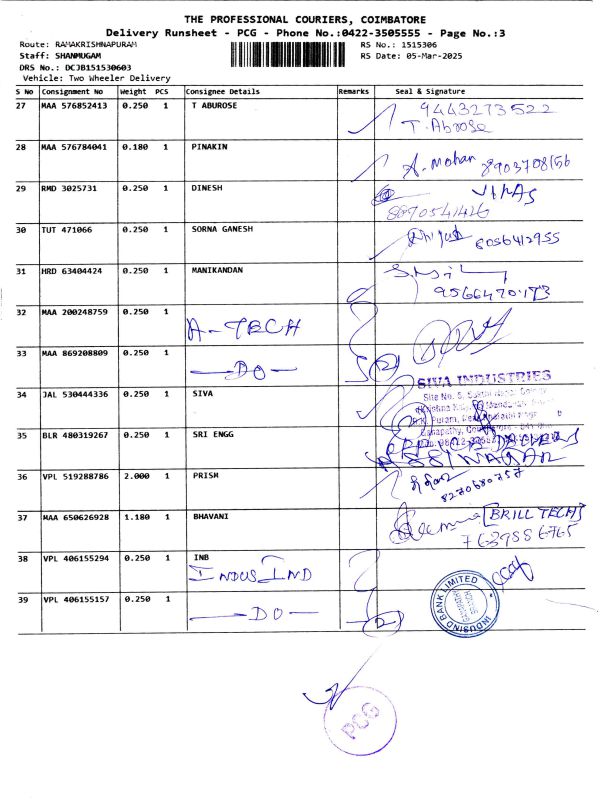 THE PROFESSIONAL COURIERS, COIMBATORE
Delivery Runsheet - PCG - Phone No.:0422-3505555 - Page No.:3
Route: RAMAKRISHNAPURAM
RS No.: 1515306
Staff: SHANMUGAM
RS Date: 05-Mar-2025
DRS No.: DCJB151530603
Vehicle: Two Wheeler Delivery
S No Consignment No Weight PCS Consignee Details Remarks Seal & Signature
27 MAA 576852413 0.250 1 T ABUROSE 9443273522
T. Abrose
28 MAA 576784041 0.180 1 PINAKIN A. Mohan 8903708156
29 RMD 3025731 0.250 1 DINESH
8870541426
30 TUT 471066 0.250 1 SORNA GANESH 6056412955
31 HRD 63404424 0.250 1 MANIKANDAN
9566470173
32 MAA 200248759 0.250 1
A-TECH
33 MAA 869208809 0.250 1
DO (2)
34 JAL 530444336 0.250 1 SIVA SIVA INDUSTRIES
35 BLR 480319267 0.250 1 SRI ENGG
36 VPL 519288786 2.000 1 PRISM
8270680757
37 MAA 650626928 1.180 1 BHAVANI [BRILL TECH]
7639556765
38 VPL 406155294 0.250 1 INB
INDUS IND
39 VPL 406155157 0.250 1
DO (2) INDUSIND BANK LIMITED
PCG